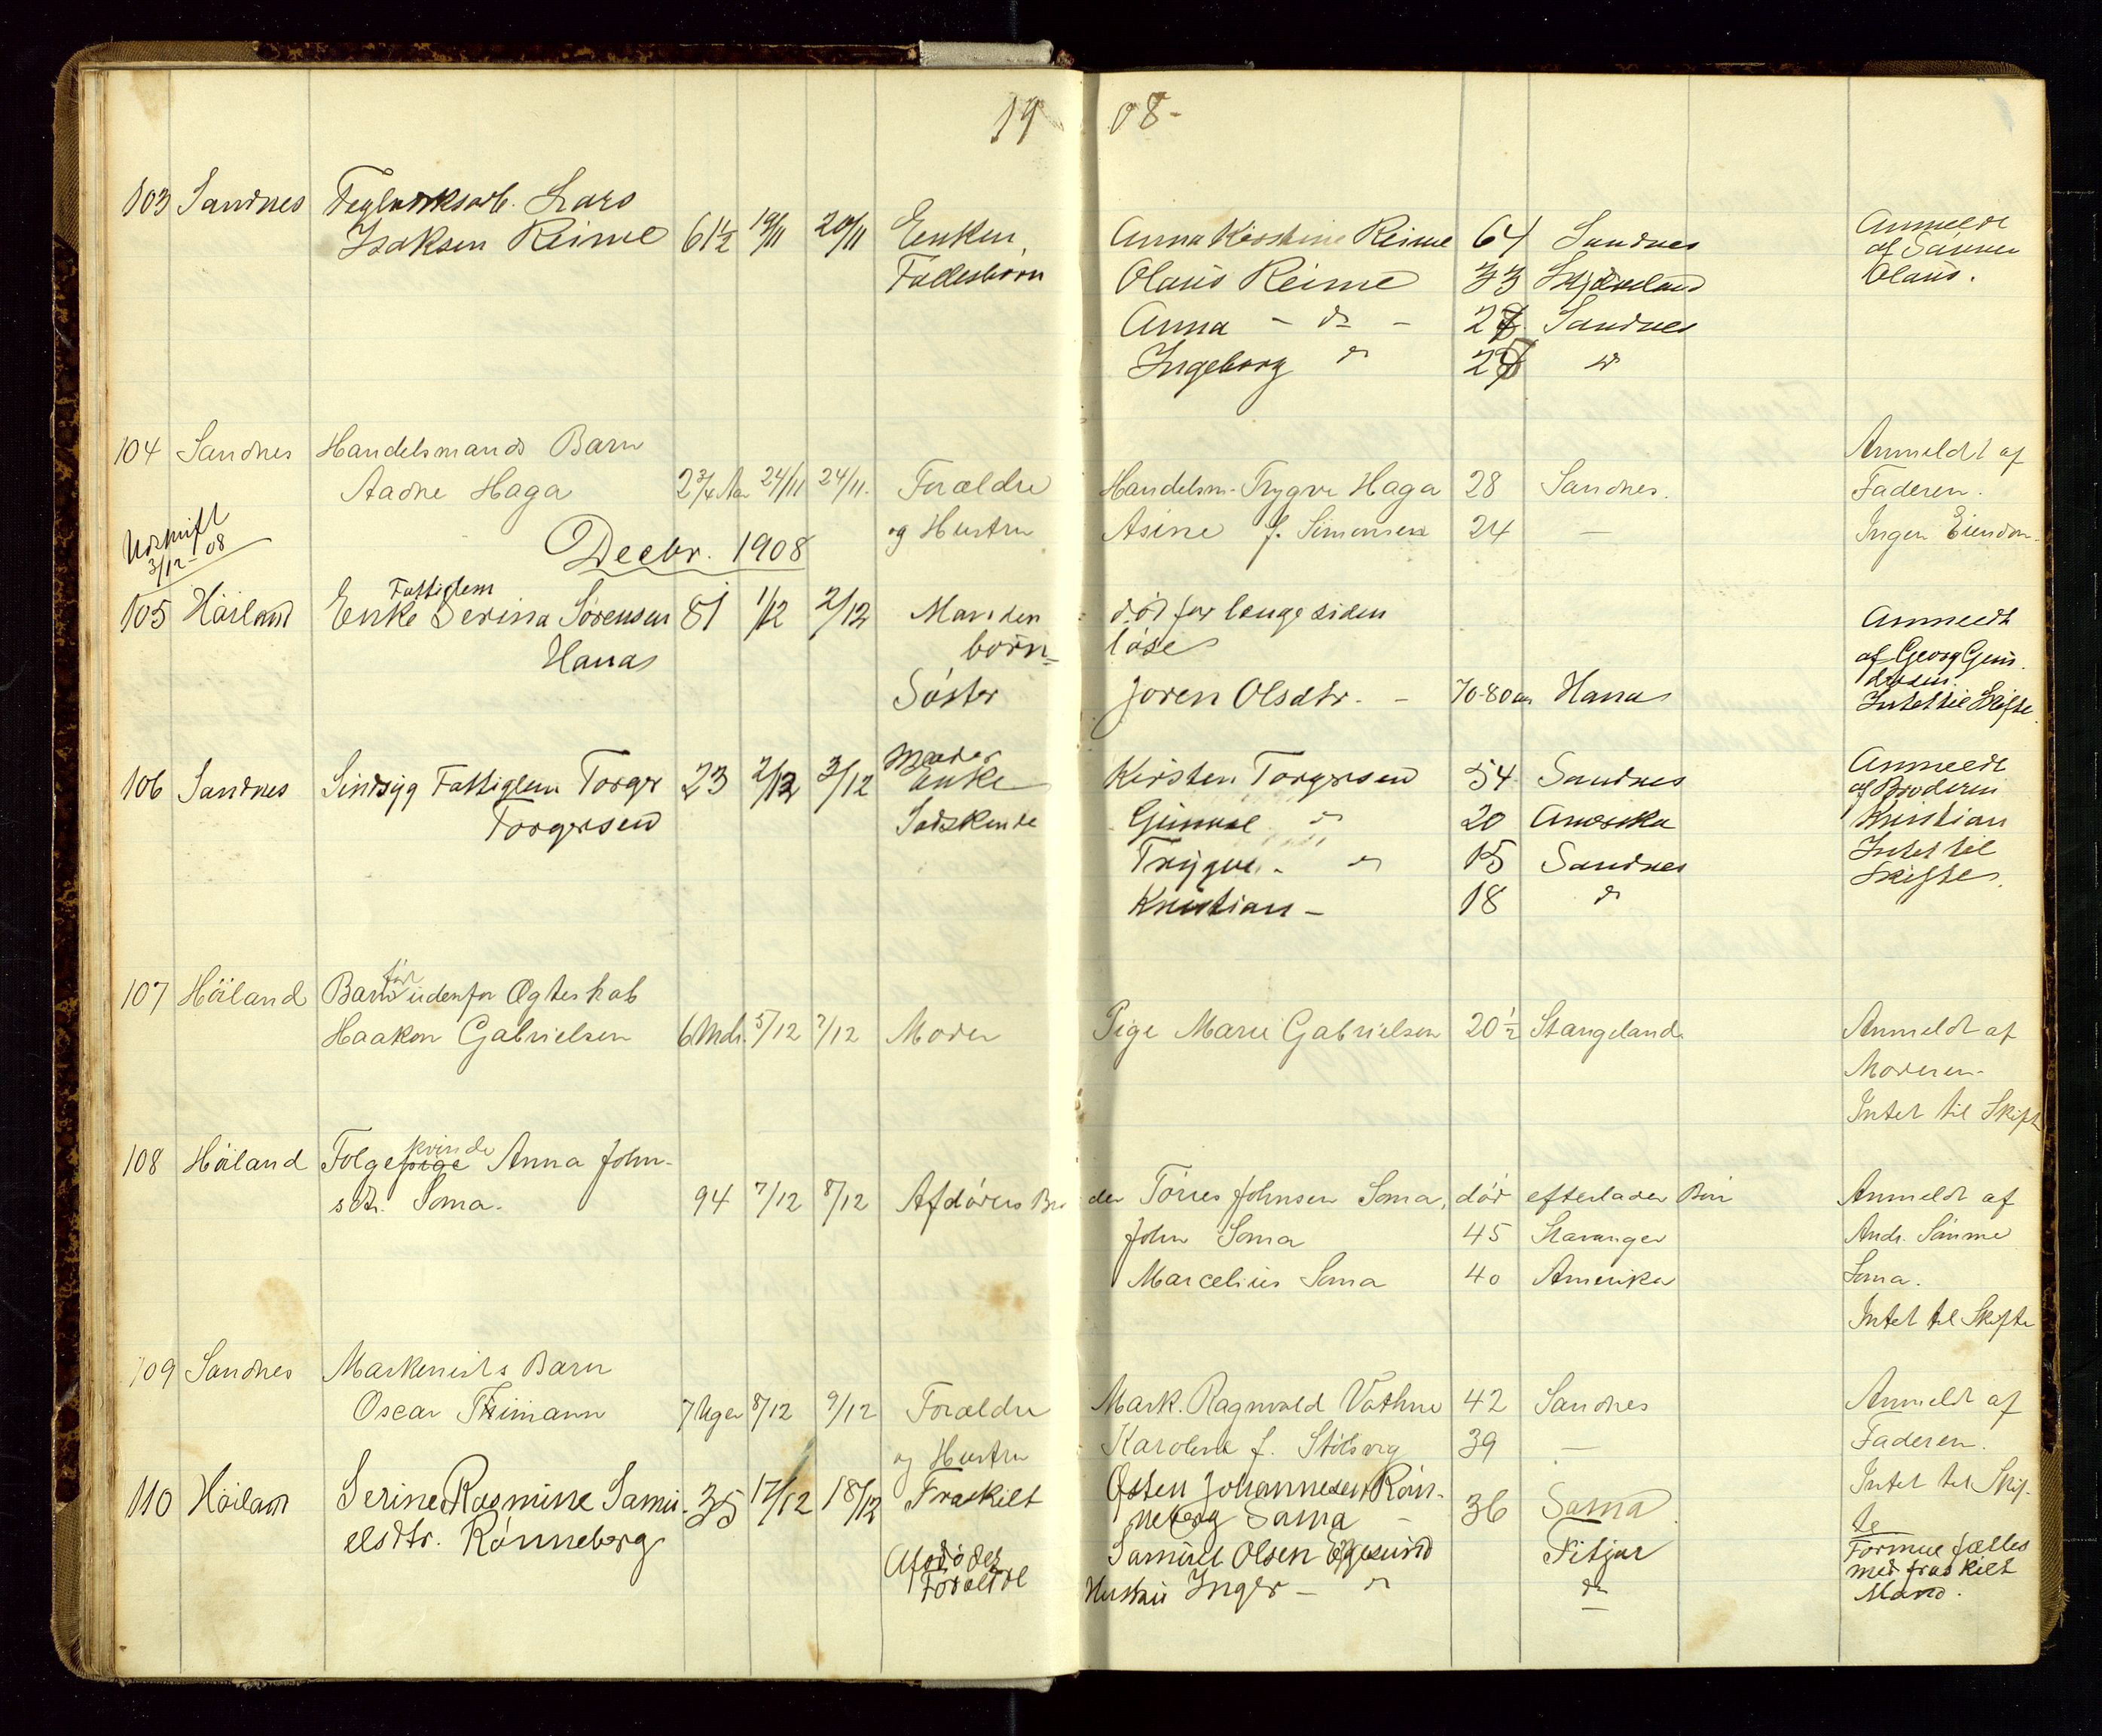 1908-
103 Sandnes Teglverksarb. Lars
Isaksen Reime 61½ 19/11 20/11 Enken, Anna Kirstine Reime 64 Sandnes Anmeldt
af Sønnen
Fællesbørn Olaus Reime 33 Skjæveland Olaus.
Anna - do - 27 Sandnes
Ingeborg do do
104 Sandnes Handelsmands Barn Anmeldt af
Aadne Haga 2¾ Aar 24/11 24/11. Forældre Handelsm. Trygve Haga 28 Sandnes. Faderen.
og Hustru Asine f. Simonsen 24 — Ingen Eiendom.
Udskrift
3/12-08
Decbr. 1908
Fattiglem
105 Höiland Enke Serina Sørensen 81 1/12 2/12 Manden død for længe siden Anmeldt
Hana børn= løse af Georg Gun
dersen.
Søster Joren Olsdtr. - 70-80 aar Hana Intet til Skifte.
Moder
106 Sandnes Sindsyg Fattiglem Torger 23 2/12 3/12 Enke Kirsten Torgersen 54 Sandnes Anmeldt
af Broderen
Torgersen Sødskende Gunval do 20 Amerika Kristian
Trygve - do 15 Sandnes Intet til
Kristian - 18 do Skifte.
før
107 Höiland Barn udenfor Ægteskab
Haakon Gabrielsen 6 Mdr. 5/12 7/12 Moder Pige Marie Gabrielsen 20½ Stangeland Anmeldt af
Moderen-
Intet til Skift
kvinde
108 Höiland Folgepige Anna John-
sdtr. Soma. 94 7/12 8/12 Afdødes Bro der Törres Johnsen Soma, død efterlader Børn Anmeldt af
John Soma 45 Stavanger Andr. Sønme
Marcelius Soma 40 Amerika Soma.
Intet til Skifte
109 Sandnes Maskenists Barn
Oscar Thimann 7 Uger 8/12 9/12 Forældre Mask. Ragnvald Vathne 42 Sandnes Anmeldt af
og Hustru Karoline f. Stølsvig 39 — Faderen.
Intet til Skif-
te
110 Höiland Serine Rasmine Samu- 35 17/12 18/12 Fraskilt Østen Johannesen Røn-
elsdtr. Rønneberg neberg Soma - 36 Soma
Afdødes Samuel Olsen Egesund Fitjar Formue fælles
Forældre Hustru Inger - do do med fraskilt
Mand.